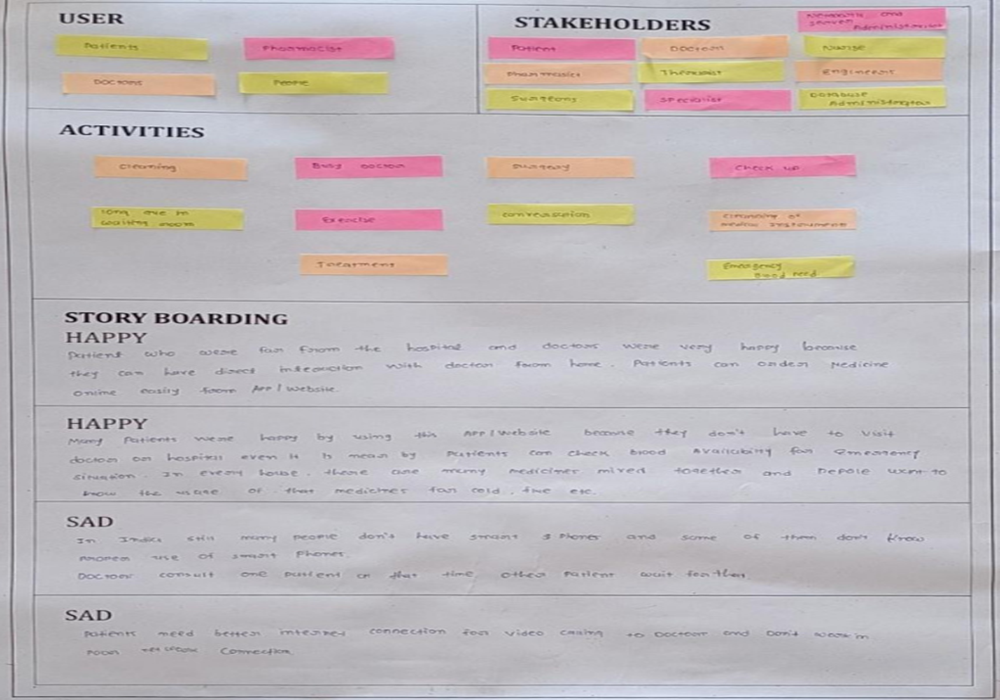 USER
Patients
Pharmacist
Doctors
People
STAKEHOLDERS
and
Administrator
Patient
Doctors
Nurse
Pharmacist
Therapist
Engineers
Surgeons
Specialist
Database
Administrator
ACTIVITIES
Cleaning
Busy doctor
Surgery
Check up
long que in
waiting room
Exercise
conversation
Cleaning of
medical Instruments
Treatment
Emergency
Blood need
STORY BOARDING
HAPPY
Patient who were far from the hospital and doctors were very happy because
they can have direct interaction with doctor from home. Patients can order Medicine
online easily from App / Website.
HAPPY
Many Patients were happy by using this App/Website because they don't have to visit
doctor or hospital even it is near by Patients can check blood Availability for emergency
situation. In every house, there are many medicines mixed together and people want to
know the usage of that medicines for cold, etc.
SAD
In India still many people don't have smart phones and some of them don't know
use of smart phones.
Doctors consult one patient on that time other Patient wait for
SAD
Patients need better internet connection for video calling to Doctors and Don't work in
Poor network Connection.